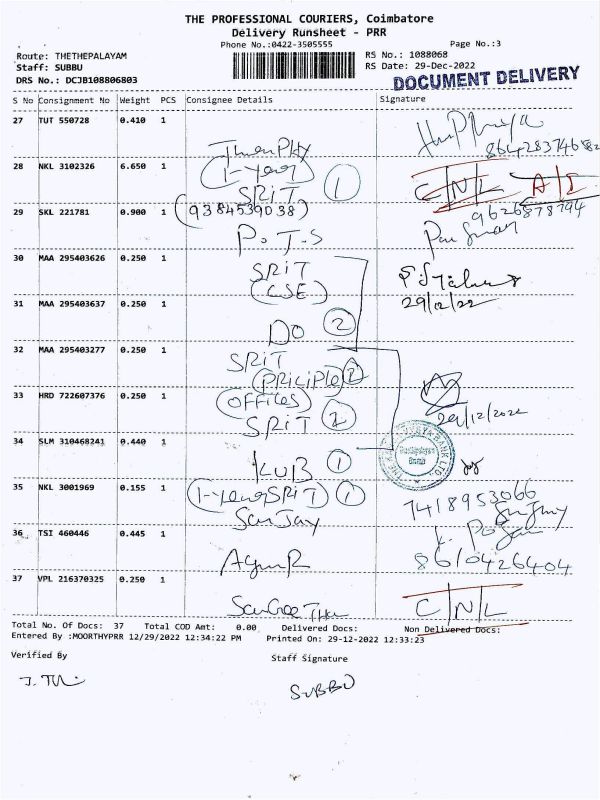 THE PROFESSIONAL COURIERS, Coimbatore
Delivery Runsheet - PRR
Phone No.:0422-3505555
Page No.:3
Route: THETHEPALAYAM
RS No.: 1088068
Staff: SUBBU
RS Date: 29-Dec-2022
DRS No.: DCJB108806803
DOCUMENT DELIVERY
S No Consignment No Weight PCS Consignee Details Signature
27 TUT 550728 0.410 1
28 NKL 3102326 6.650 1
1-year
SRiT 1
C/N/L
29 SKL 221781 0.900 1
(9384539038)
9626878794
P.T.S
30 MAA 295403626 0.250 1
SRiT
(CSE)
29/12/22
31 MAA 295403637 0.250 1
DO 2
32 MAA 295403277 0.250 1
SRiT
PRiCiPLE
33 HRD 722607376 0.250 1
OFFiCES
SRiT 2
29/12/2022
34 SLM 310468241 0.440 1
KVB 1
35 NKL 3001969 0.155 1
1-year SRiT 1
7418953066
SanJay
36 TSI 460446 0.445 1
8610426404
37 VPL 216370325 0.250 1
C/N/L
Total No. Of Docs: 37 Total COD Amt: 0.00 Delivered Docs: Non Delivered Docs:
Entered By :MOORTHYPRR 12/29/2022 12:34:22 PM Printed On: 29-12-2022 12:33:23
Verified By
Staff Signature
SUBBU